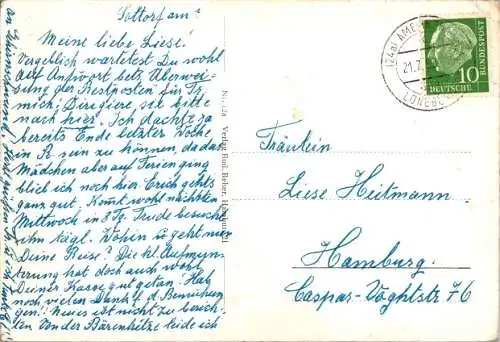 Sottorf am
Meine liebe Liese!
Vergeblich wartetest Du wohl
auf Antwort betr. Überwei-
sung der Restposten für Tr.
mich; Dirigiere sie bitte
nach hier! Ich dachte ja
bereits Ende letzter Woche
in R. sein zu können, da das
Mädchen aber auf Ferien ging
blieb ich noch hier. Erich gehts
ganz gut. Komt wohl nächsten
Mittwoch in 8 Tg. Trude besucht
ihn tägl. Wohin geht nun
Deine Reise? Die kl. Aufmun-
terung hat doch auch wohl
Deiner Kasse gut getan. Hab
noch vielen Dank f. d. Bemühun-
gen! Neues ist nicht zu berich-
ten. Von der Bärenhitze leide ich
Verlag Rud. Hamburg
(24a) AME
21.7.
LÜNEB
10
DEUTSCHE
BUNDESPOST
Fräulein
Liese Heitmann
Hamburg.
Caspar-Voghtstr 76